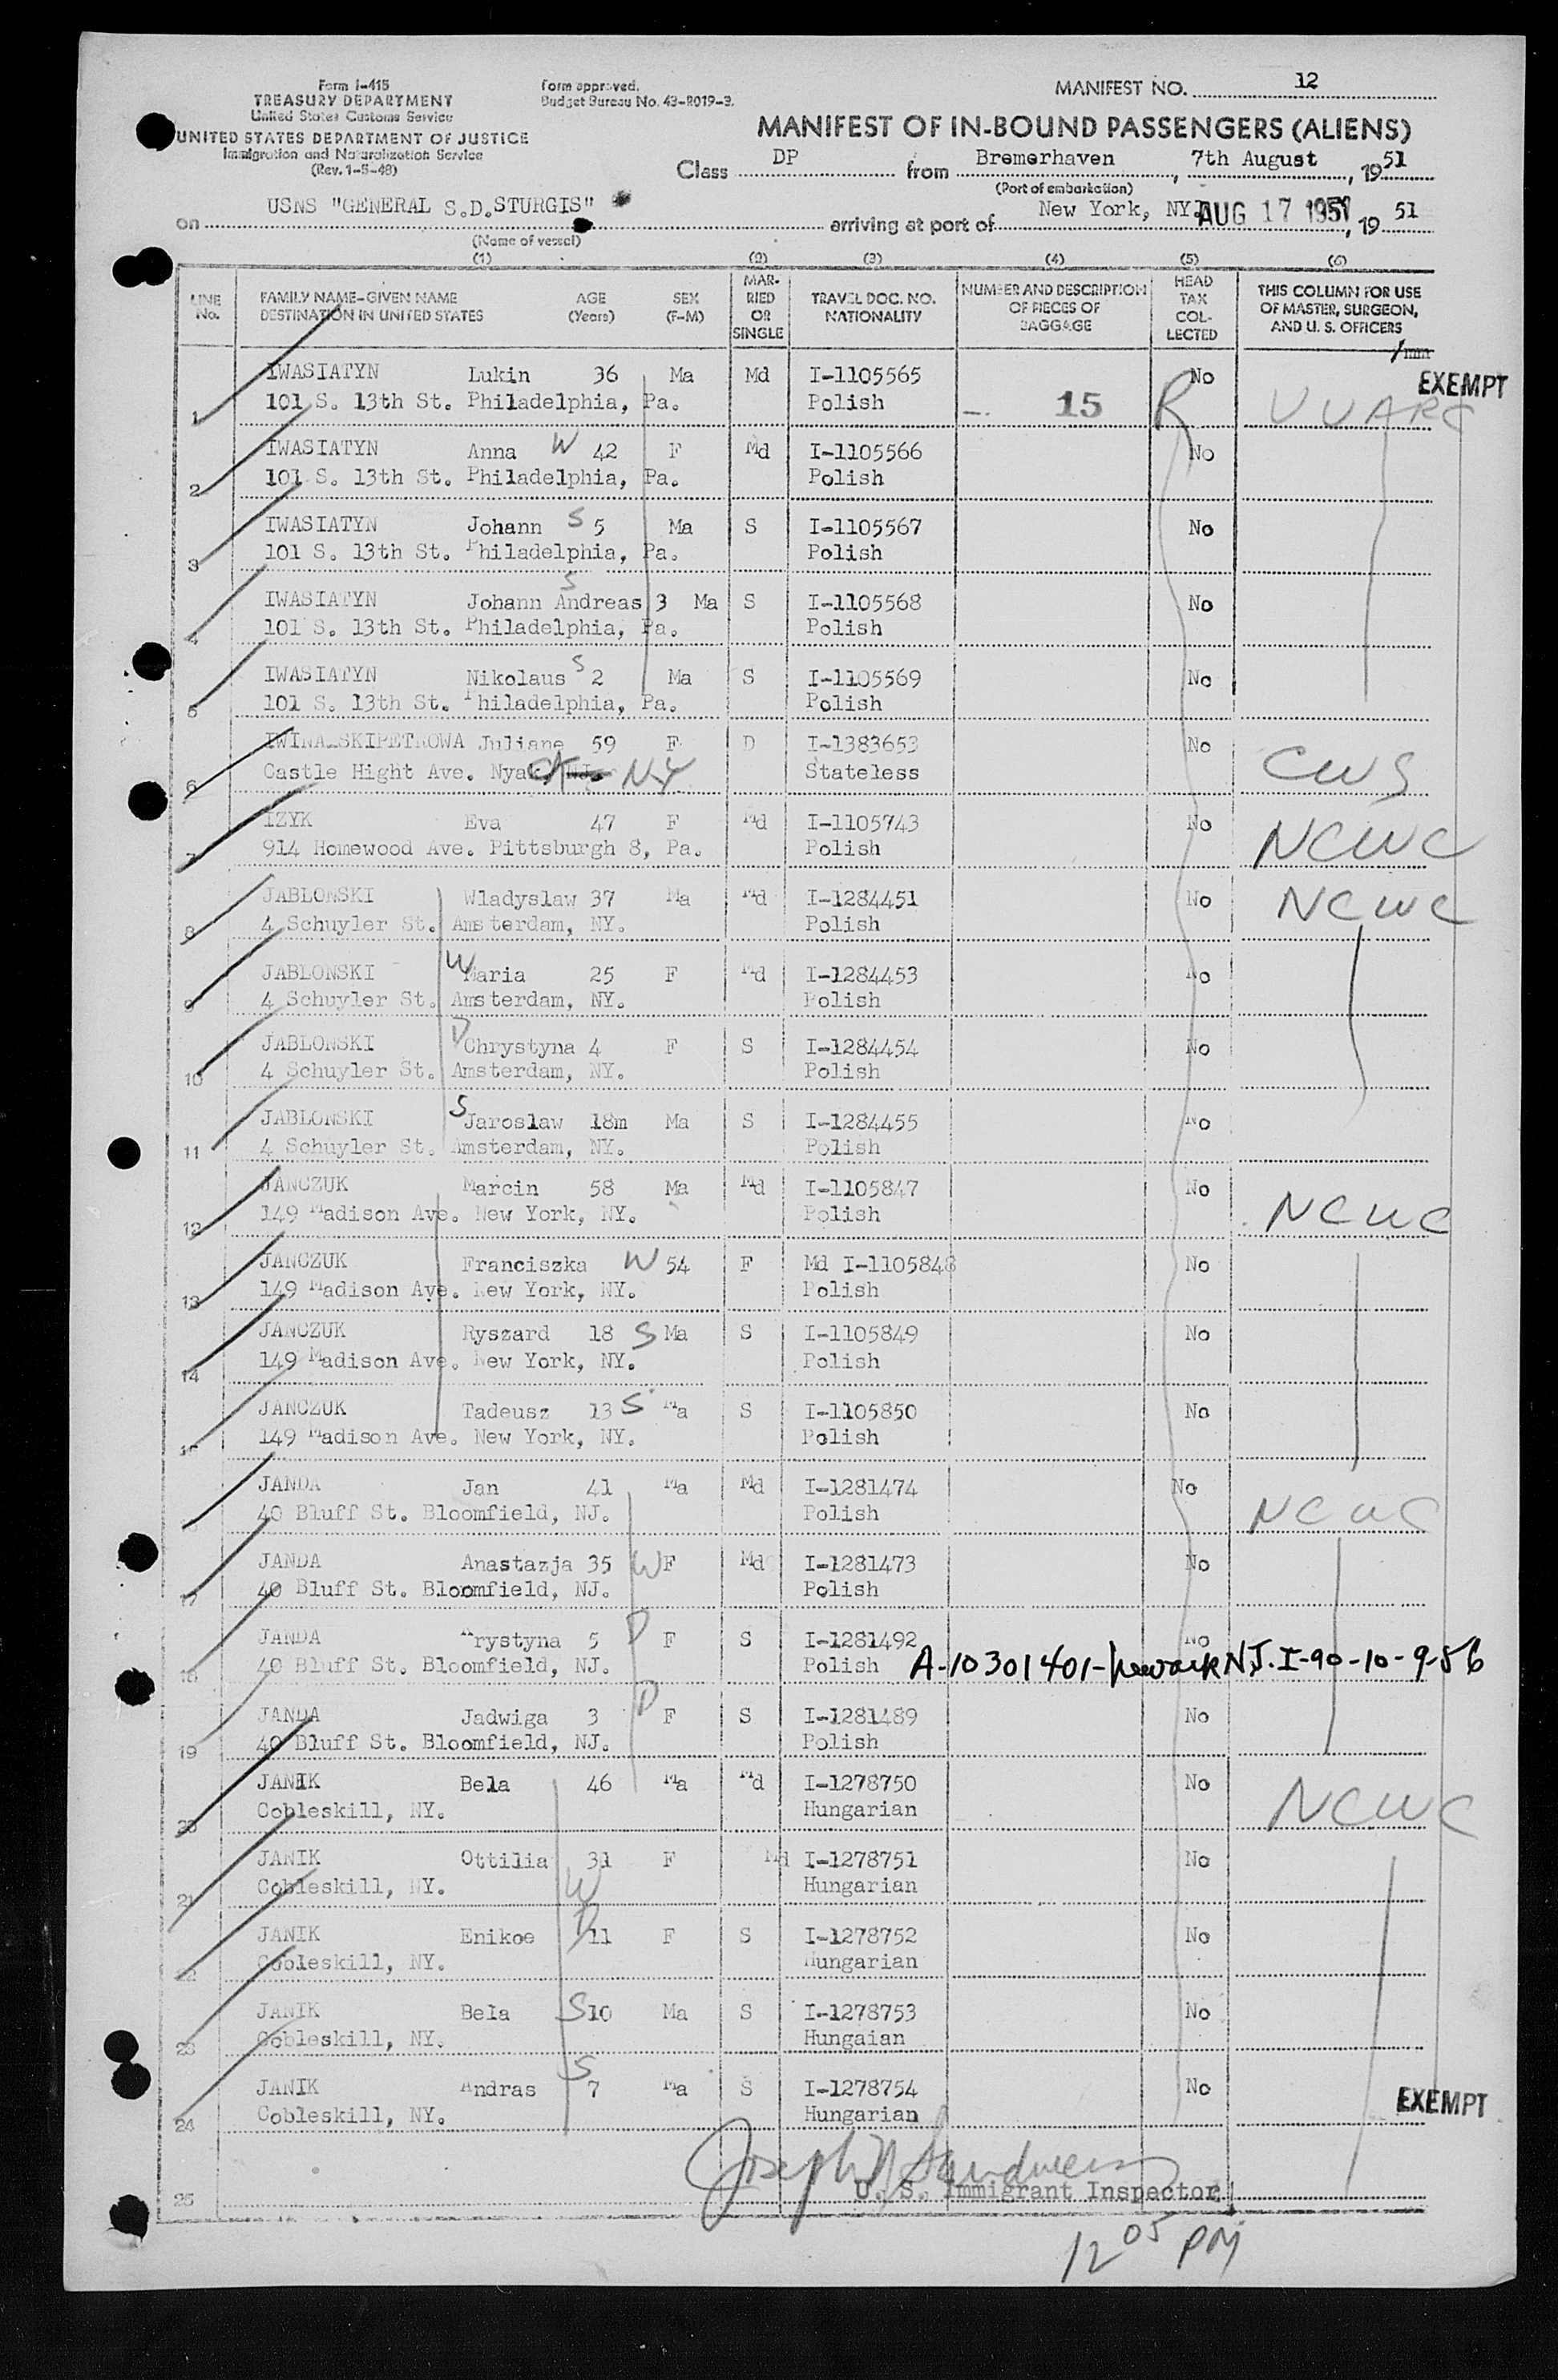 Form I-415
TREASURY DEPARTMENT
United States Customs Service
UNITED STATES DEPARTMENT OF JUSTICE
Immigration and Naturalization Service
(Rev. 1-5-48)
Form approved.
Budget Bureau No. 43-R019-3.
MANIFEST NO. 12
MANIFEST OF IN-BOUND PASSENGERS (ALIENS)
Class DP from Bremerhaven, 7th August, 1951
(Port of embarkation)
on USNS "GENERAL S.D.STURGIS" arriving at port of New York, NY. AUG 17 1951, 19 51
(Name of vessel)
(1) (2) (3) (4) (5) (6)
LINE No. FAMILY NAME-GIVEN NAME DESTINATION IN UNITED STATES AGE (Years) SEX (F-M) MARRIED OR SINGLE TRAVEL DOC. NO. NATIONALITY NUMBER AND DESCRIPTION OF PIECES OF BAGGAGE HEAD TAX COLLECTED THIS COLUMN FOR USE OF MASTER, SURGEON, AND U. S. OFFICERS
EXEMPT
IWASIATYN Lukin 36 Ma Md I-1105565 No
1 101 S. 13th St. Philadelphia, Pa. Polish 15 R UUARC
IWASIATYN Anna W 42 F Md I-1105566 No
2 101 S. 13th St. Philadelphia, Pa. Polish
IWASIATYN Johann S 5 Ma S I-1105567 No
3 101 S. 13th St. Philadelphia, Pa. Polish
IWASIATYN Johann Andreas S 3 Ma S I-1105568 No
4 101 S. 13th St. Philadelphia, Pa. Polish
IWASIATYN Nikolaus S 2 Ma S I-1105569 No
5 101 S. 13th St. Philadelphia, Pa. Polish
Juliane 59 F D I-1383653 No
6 Castle Hight Ave. Nyack NJ. N-Y Stateless CWS
IZYK Eva 47 F Md I-1105743 No
7 914 Homewood Ave. Pittsburgh 8, Pa. Polish NCWC
JABLONSKI Wladyslaw 37 Ma Md I-1284451 No NCWC
8 4 Schuyler St. Amsterdam, NY. Polish
JABLONSKI W Maria 25 F Md I-1284453 No
9 4 Schuyler St. Amsterdam, NY. Polish
JABLONSKI D Chrystyna 4 F S I-1284454 No
10 4 Schuyler St. Amsterdam, NY. Polish
JABLONSKI S Jaroslaw 18m Ma S I-1284455 No
11 4 Schuyler St. Amsterdam, NY. Polish
JANCZUK Marcin 58 Ma Md I-1105847 No
12 149 Madison Ave. New York, NY. Polish NCWC
JANCZUK Franciszka W 54 F Md I-1105848 No
13 149 Madison Ave. New York, NY. Polish
JANCZUK Ryszard 18 S Ma S I-1105849 No
14 149 Madison Ave. New York, NY. Polish
JANCZUK Tadeusz 13 S Ma S I-1105850 No
15 149 Madison Ave. New York, NY. Polish
JANDA Jan 41 Ma Md I-1281474 No
16 40 Bluff St. Bloomfield, NJ. Polish NCWC
JANDA Anastazja 35 W F Md I-1281473 No
17 40 Bluff St. Bloomfield, NJ. Polish
JANDA Krystyna 5 D F S I-1281492 No
18 40 Bluff St. Bloomfield, NJ. Polish A-10301401-Newark N.J. I-90-10-9-56
JANDA Jadwiga 3 D F S I-1281489 No
19 40 Bluff St. Bloomfield, NJ. Polish
JANIK Bela 46 Ma Md I-1278750 No
20 Cobleskill, NY. Hungarian NCWC
JANIK Ottilia 31 F Md I-1278751 No
21 Cobleskill, NY. W Hungarian
JANIK Enikoe D 11 F S I-1278752 No
22 Cobleskill, NY. Hungarian
JANIK Bela S 10 Ma S I-1278753 No
23 Cobleskill, NY. Hungaian
JANIK Andras S 7 Ma S I-1278754 No
24 Cobleskill, NY. Hungarian EXEMPT
Joseph
25 U. S. Immigrant Inspector
12 05 PM